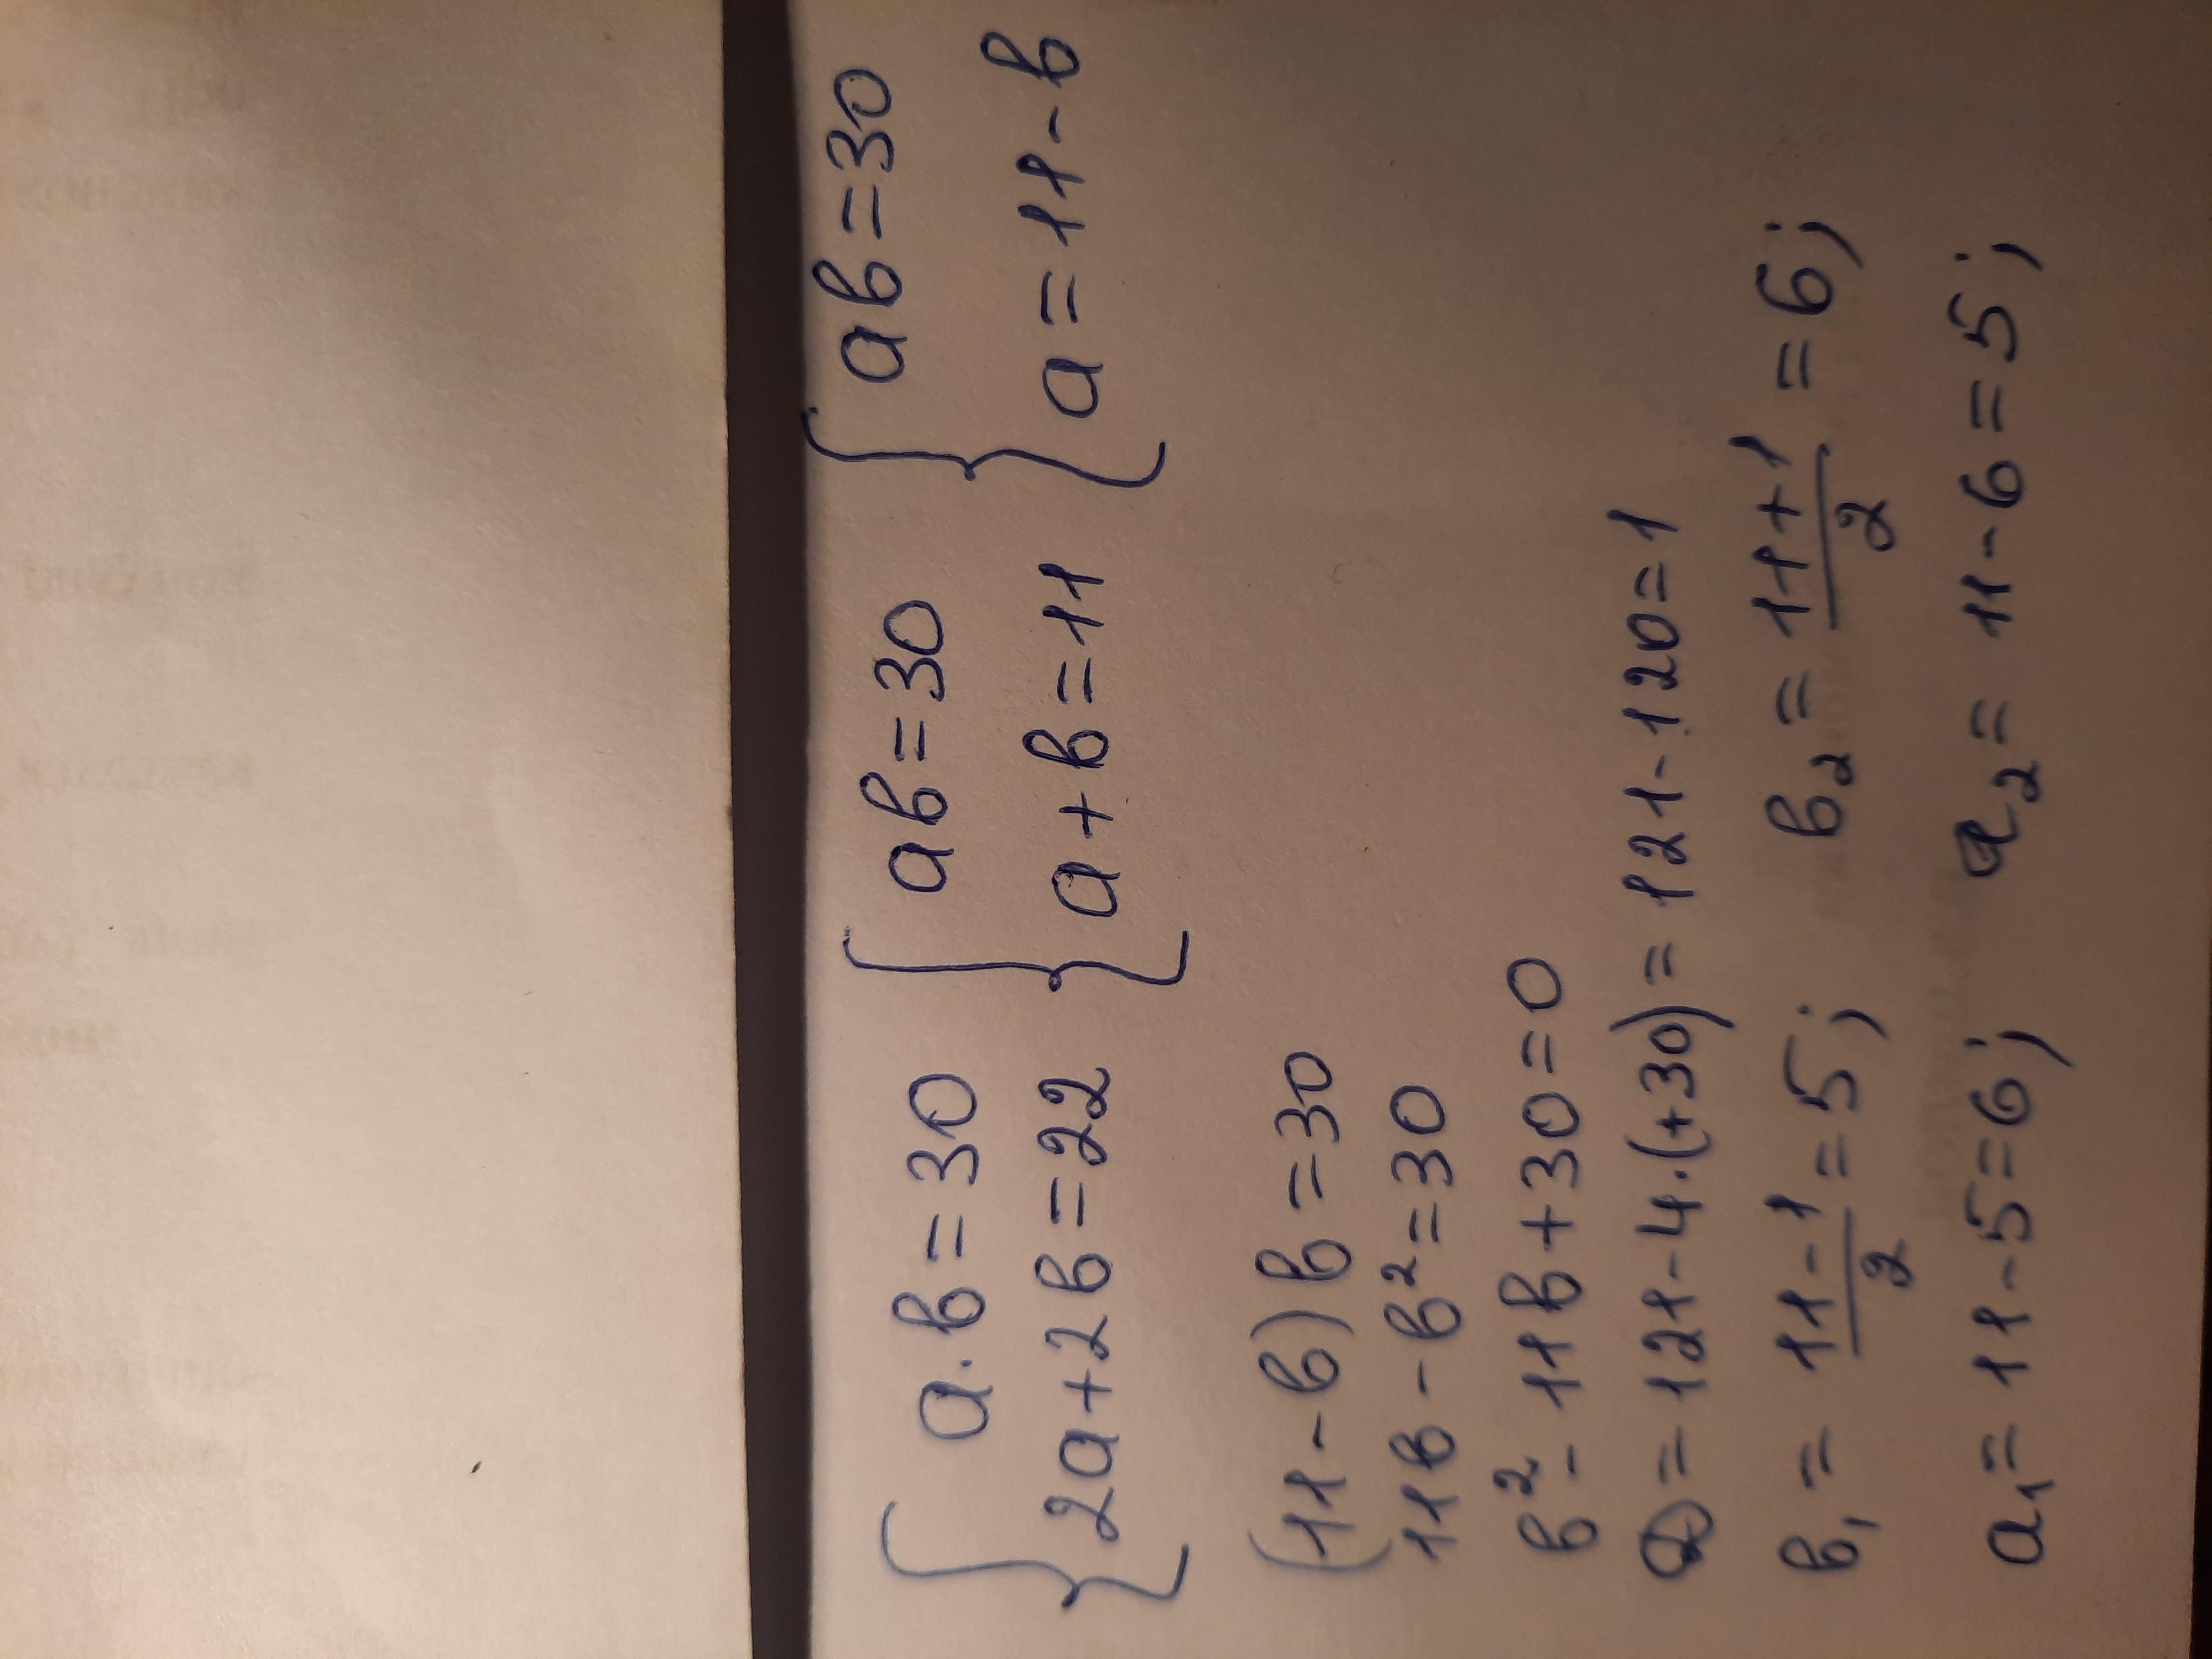 { a·b=30 { ab=30 { ab=30
2a+2b=22 a+b=11 a=11-b
(11-b)b=30
11b-b²=30
b²-11b+30=0
D=121-4·(+30)=121-120=1
b₁=(11-1)/2=5; b₂=(11+1)/2=6;
a₁=11-5=6; a₂=11-6=5;